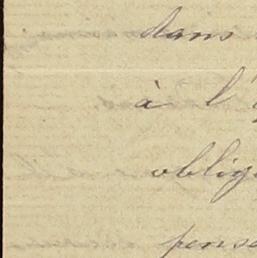 dans
à l'
oblig
pense